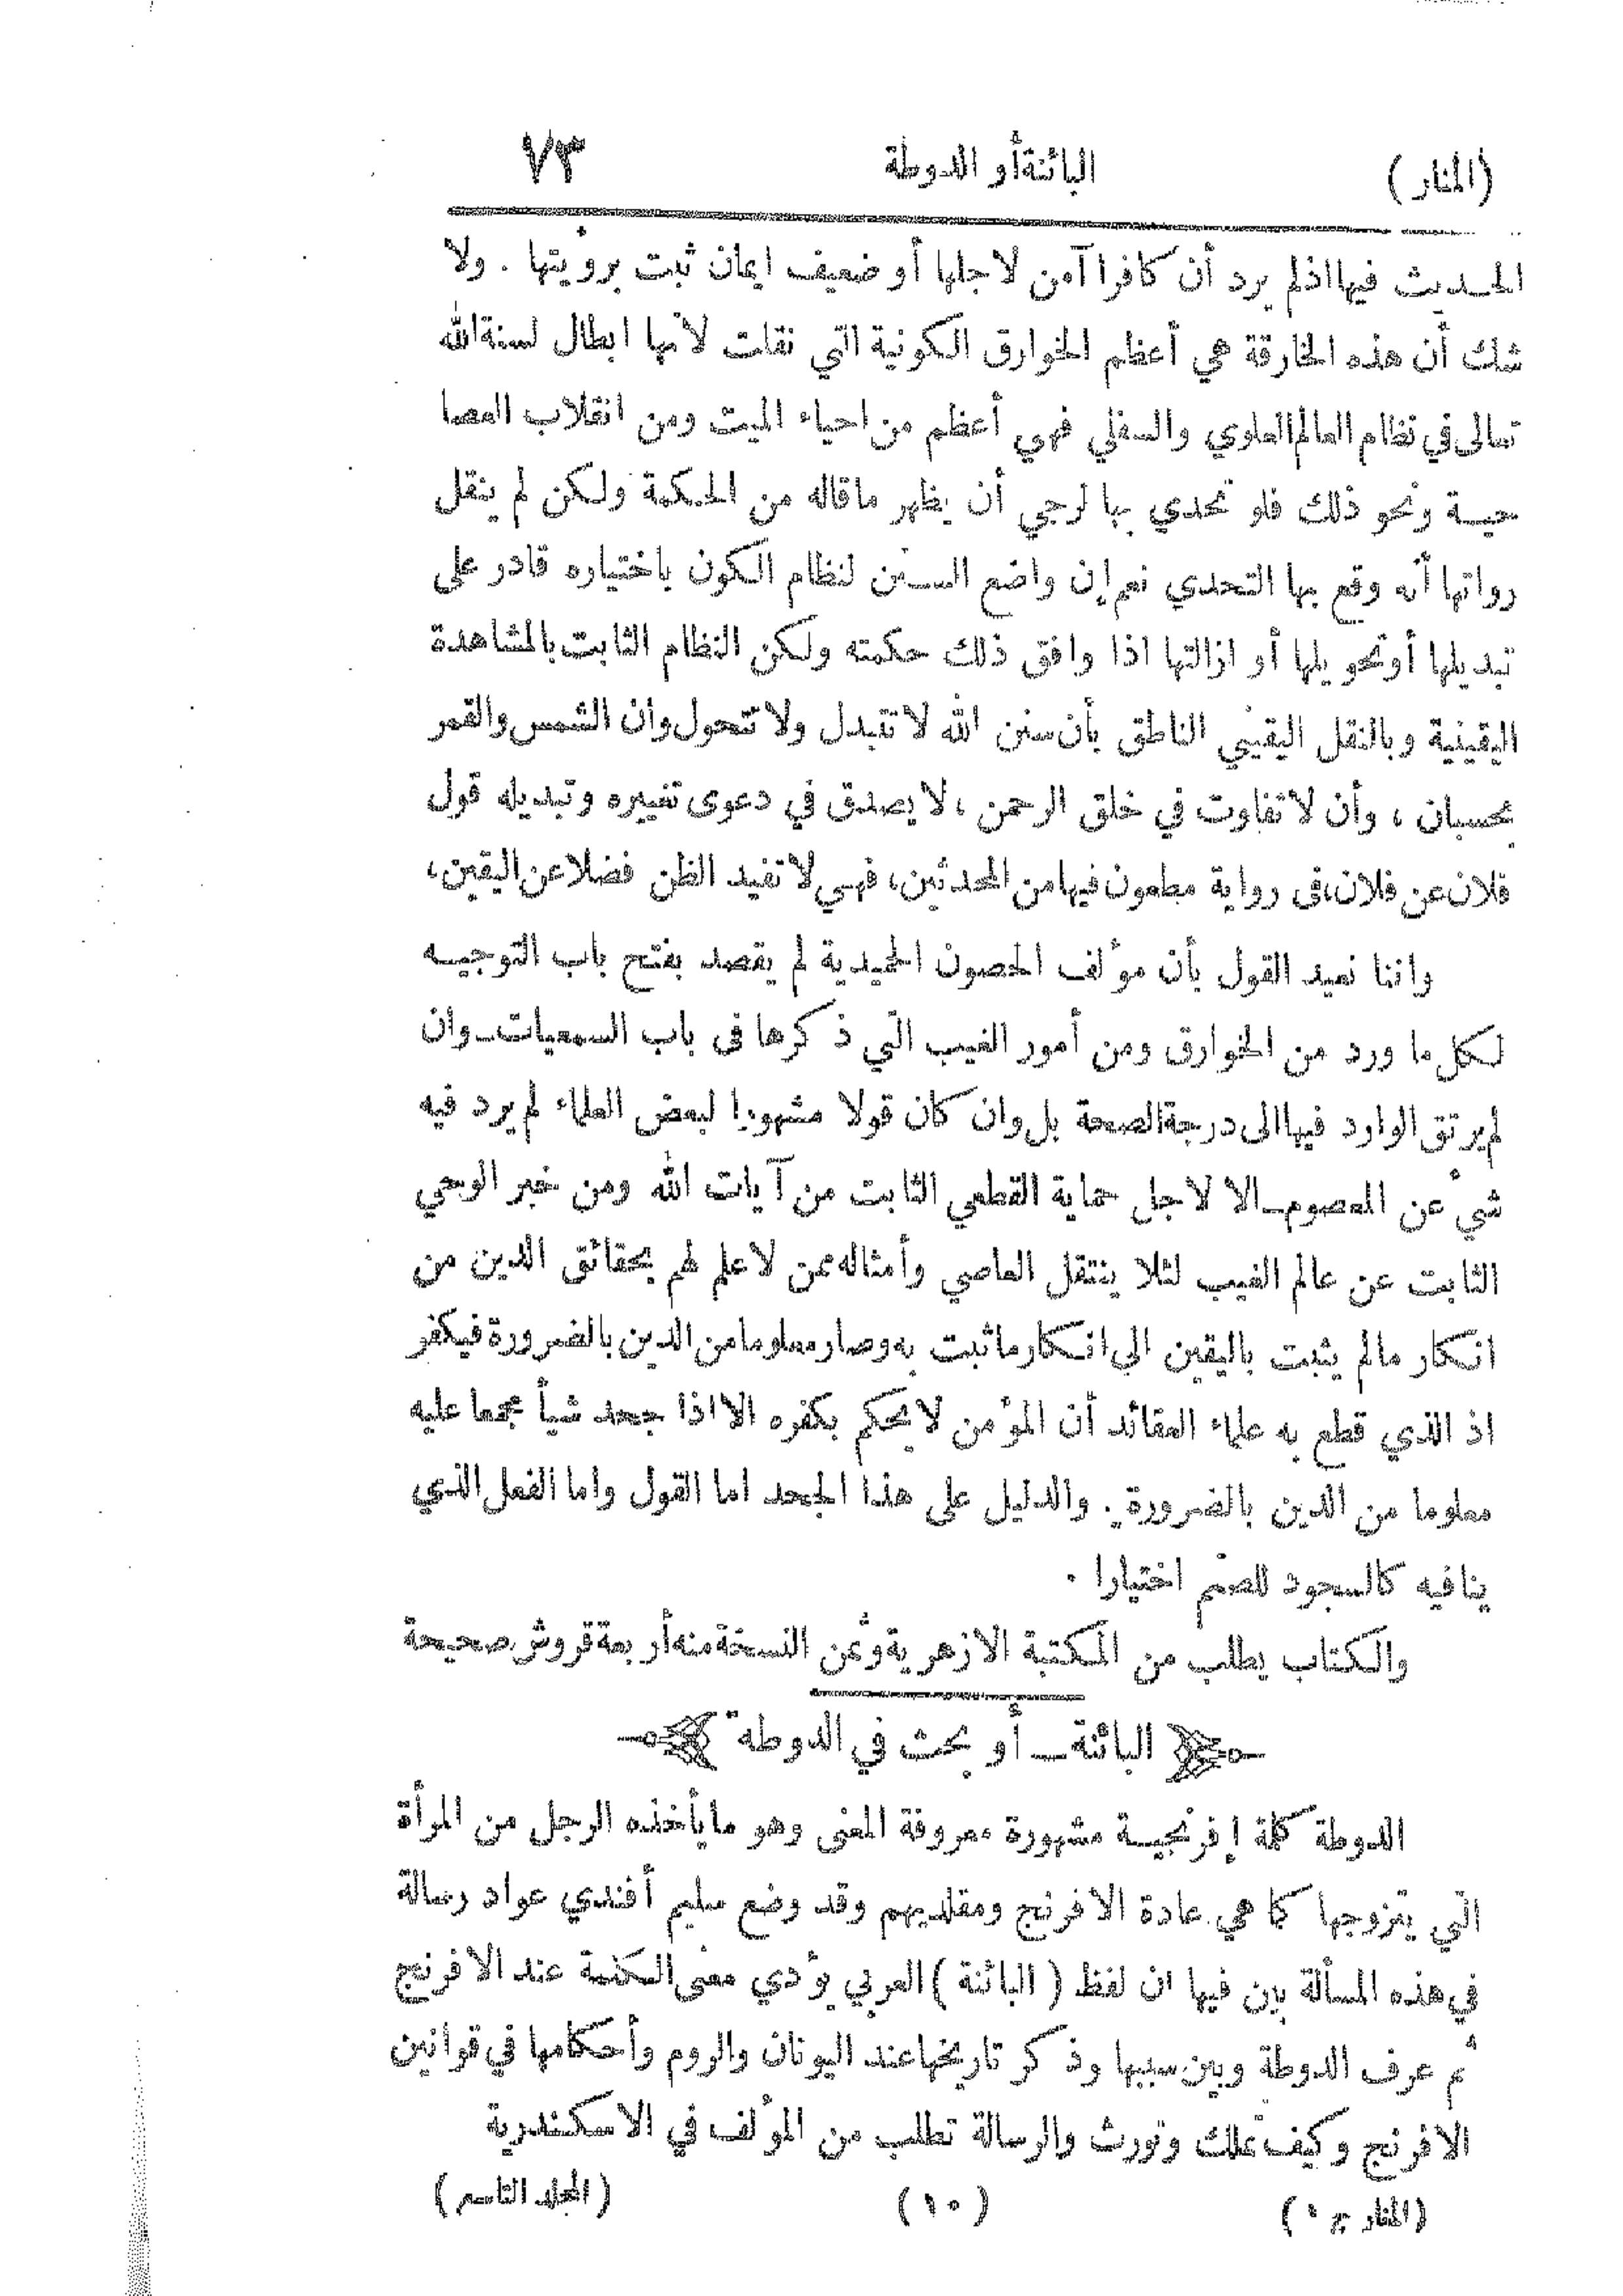 (المنار) البائنة أو الدوطة ٧٣
الحديث فيها اذ لم يرد أن كافرا آمن لاجلها أو ضعيف ايمان ثبت برؤيتها . ولا
شك أن هذه الخارقة هي أعظم الخوارق الكونية التي نقلت لانها ابطال لسنة الله
تعالى في نظام العالم العلوي والسفلي فهي أعظم من احياء الميت ومن انقلاب العصا
حية ونحو ذلك فلو تحدي بها لرجي أن يظهر ماقاله من الحكمة ولكن لم ينقل
رواتها أنه وقع بها التحدي نعم إن واضع السنن لنظام الكون باختياره قادر على
تبديلها أو تحويلها أو ازالتها اذا وافق ذلك حكمته ولكن النظام الثابت بالمشاهدة
اليقينية وبالنقل اليقيني الناطق بأن سنن الله لا تتبدل ولا تتحول وان الشمس والقمر
بحسبان ، وأن لا تفاوت في خلق الرحمن ، لا يصدق في دعوى تغييره وتبديله قول
فلان عن فلان، فى رواية مطعون فيها من المحدثين، فهي لا تفيد الظن فضلا عن اليقين،
واننا نعيد القول بأن مؤلف الحصون الحميدية لم يقصد بفتح باب التوجيه
لكل ما ورد من الخوارق ومن أمور الغيب التي ذكرها فى باب السمعيات ـ وان
لم يرتق الوارد فيها الى درجة الصحة بل وان كان قولا مشهورا لبعض العلماء لم يرد فيه
شيء عن المعصوم ـ الا لاجل حماية القطعي الثابت من آيات الله ومن خبر الوحي
الثابت عن عالم الغيب لئلا ينتقل العاصي وأمثاله ممن لا علم لهم بحقائق الدين من
انكار مالم يثبت باليقين الى انكار ما ثبت به وصار معلوما من الدين بالضرورة فيكفر
اذ الذي قطع به علماء العقائد أن المؤمن لا يحكم بكفره الا اذا جحد شيأ مجمعا عليه
معلوما من الدين بالضرورة . والدليل على هذا الجحد اما القول واما الفعل الذي
ينافيه كالسجود للصنم اختيارا .
والكتاب يطلب من المكتبة الازهرية وثمن النسخة منه أربعة قروش صحيحة
البائنة ـ أو بحث في الدوطة
الدوطة كلمة إفرنجية مشهورة معروفة المعنى وهو ما يأخذه الرجل من المرأة
التي يتزوجها كما هي عادة الافرنج ومقلديهم وقد وضع سليم أفندي عواد رسالة
في هذه المسألة بين فيها ان لفظ ( البائنة ) العربي يؤدي معنى الكلمة عند الافرنج
ثم عرف الدوطة وبين سببها وذكر تاريخها عند اليونان والروم وأحكامها في قوانين
الافرنج وكيف تملك وتورث والرسالة تطلب من المؤلف في الاسكندرية
(المنار ج ١) (١٠) (المجلد التاسع)